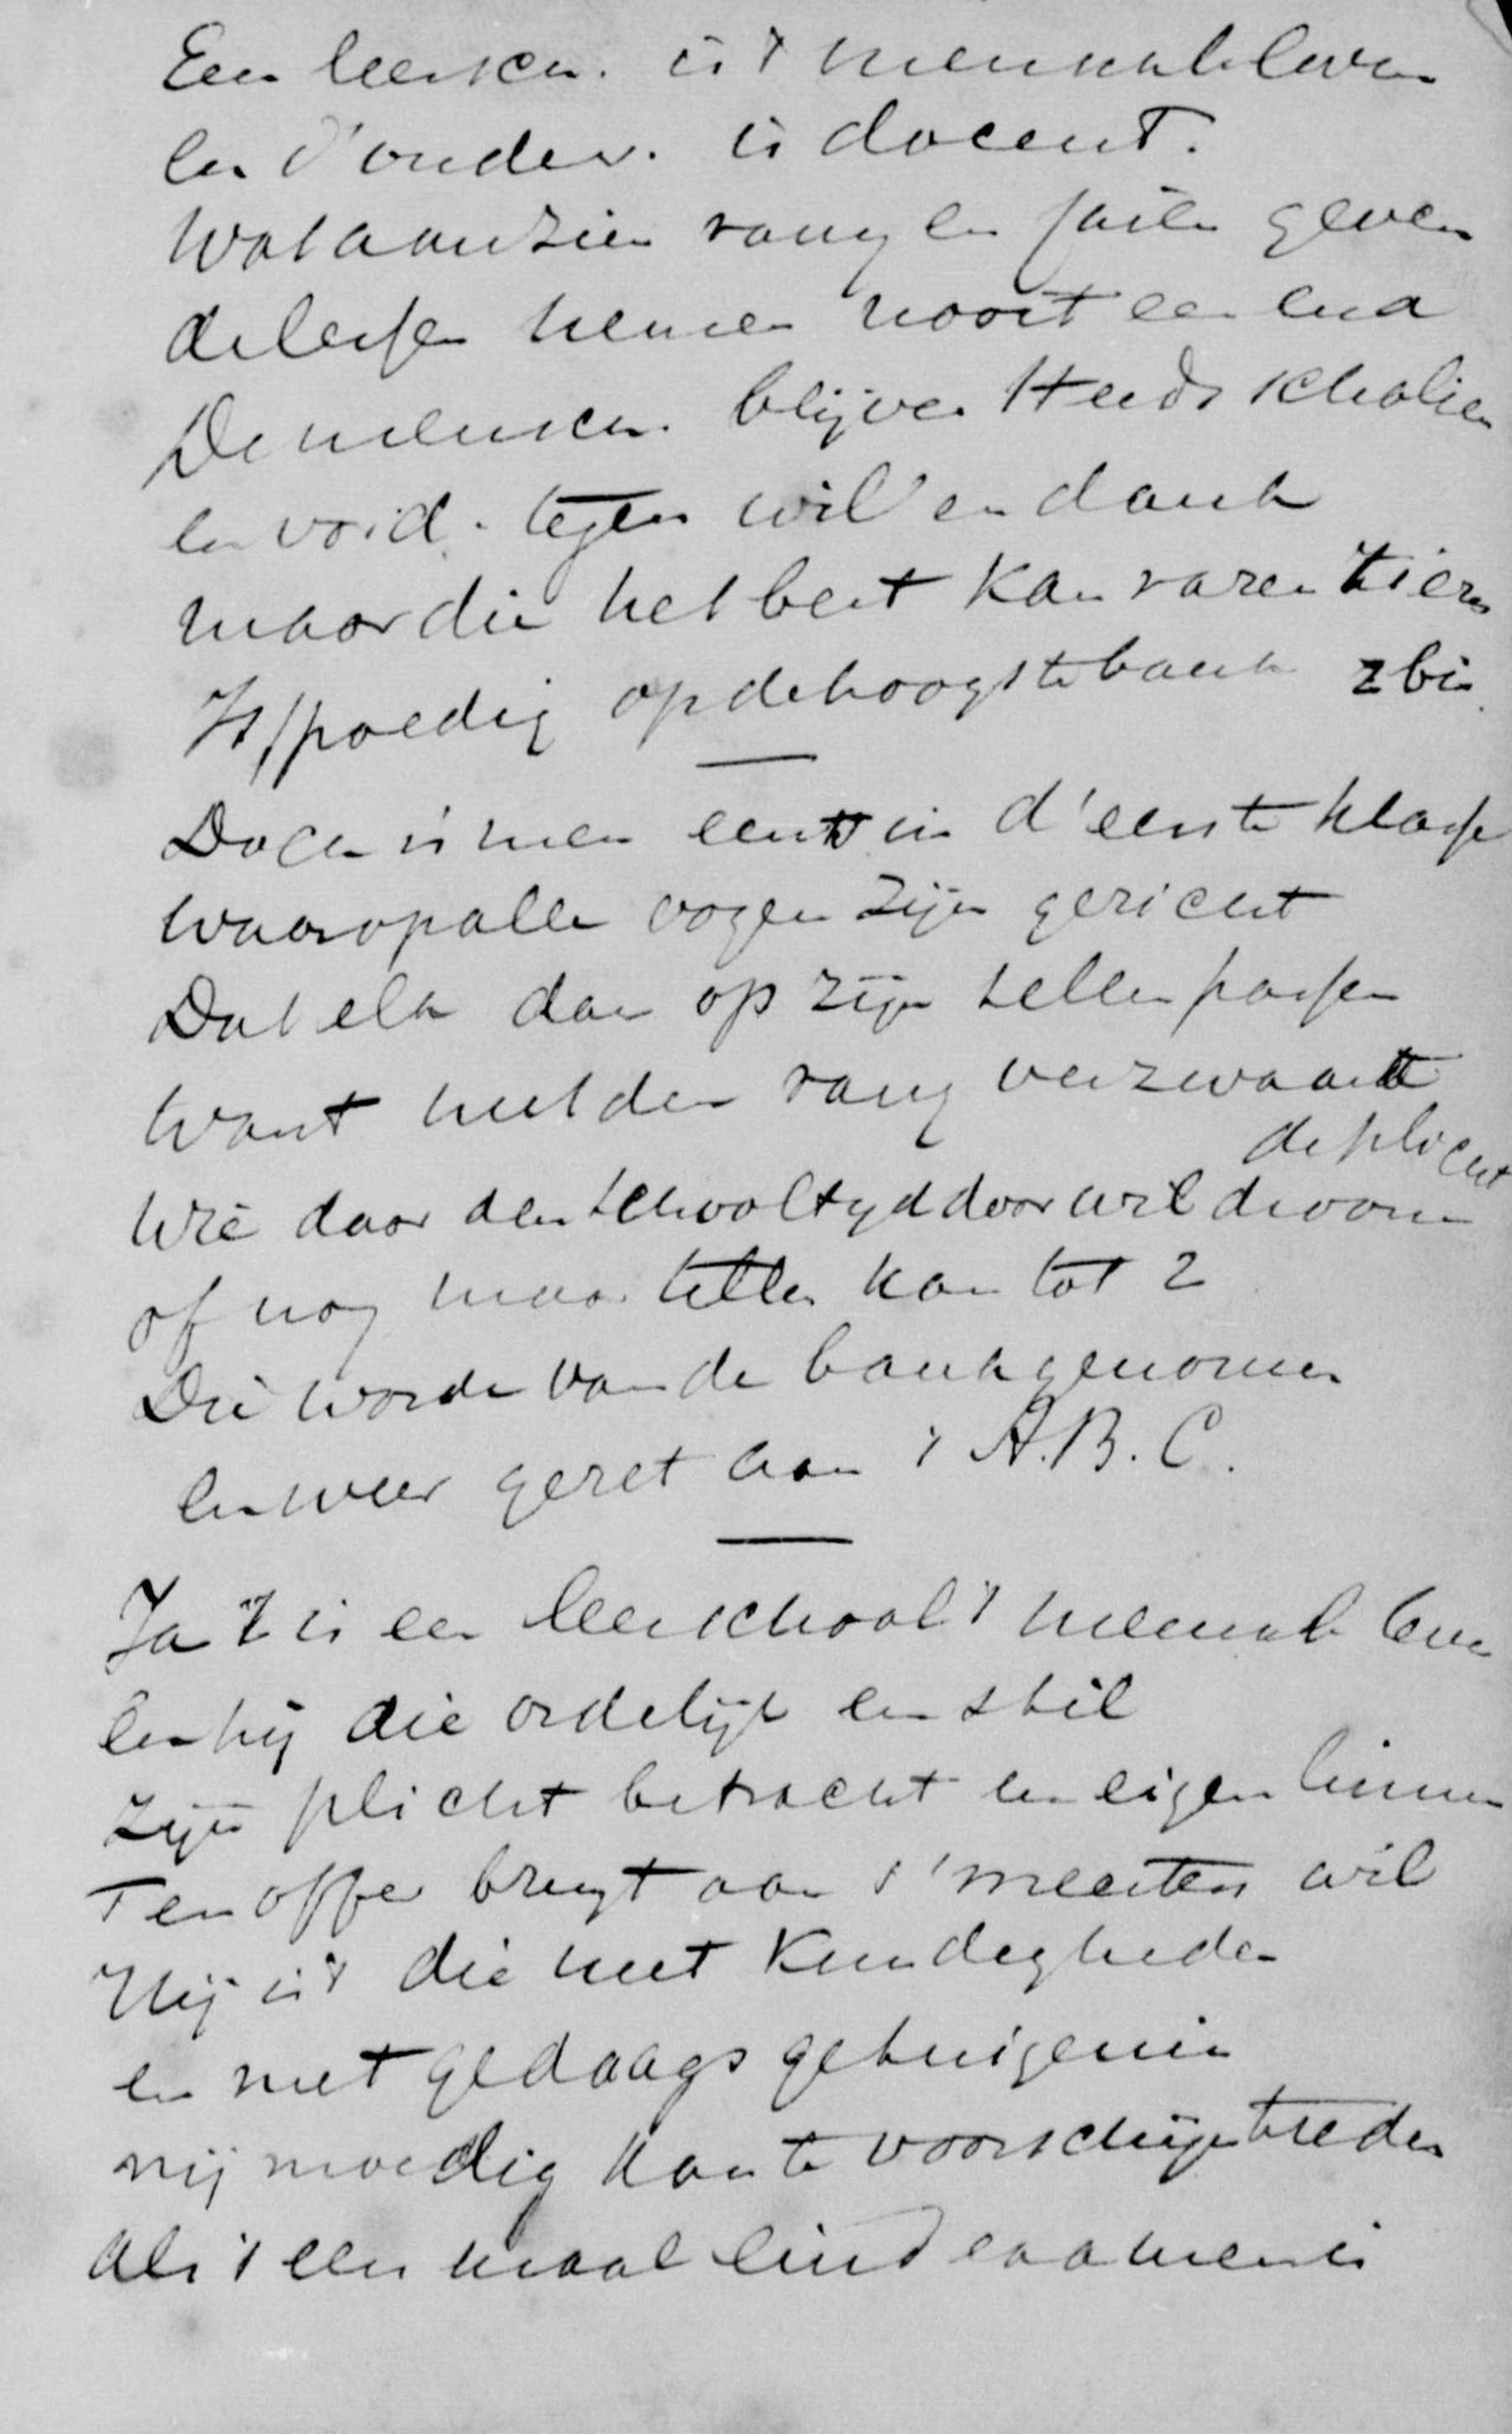 Een leersch. is 't menschel. leven
en d'onderv. is docent.
Wat aanzien rang en jaren geven
de lessen nemen nooit een end
De menschen. blijven steeds scholier
en void. tegen wil en dank
maar die het best kan
Is spoedig op de hoogste bank
Doch is men eens in d'eerste klasse
waarop aller oogen zijn gericht
Dat elk dan op zijn tellen passe
Want met den rang verzwaart
de plicht
Wie daar den schooltyd door wil droomen
of nog maar tellen kan tot 2
Die worde van de bank genomen
en weer gezet aan 't A.B.C.
Ja 't is een leerschool 't menschel. leven
en hij die ordelijk en stil
zijn plicht betracht en eigen
Ten offer brengt aan 's meesters wil
Hij is 't die met kundigheden
en met gedaags getuigenis
vrijmoedig kan te voorschijn treden
als 't eenmaal eind examen is